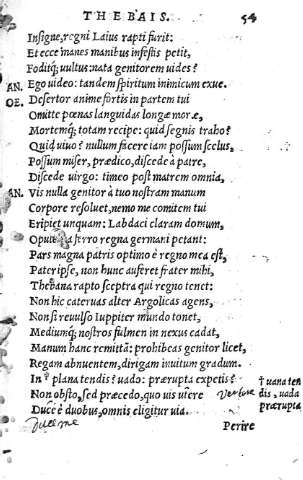 THEBAIS. 54
Insigne, regni Laius rapti furit:
Et ecce inanes manibus infestis petit,
Foditq; uultus: nata genitorem uides?
AN. Ego video: tandem spiritum inimicum exue.
OE. Desertor anime fortis in partem tui
Omitte pœnas languidas longæ moræ,
Mortemq; totam recipe: quid segnis traho?
Quid uiuo? nullum facere iam possum scelus,
Possum miser, prædico, discede à patre,
Discede uirgo: timeo post matrem omnia.
AN. Vis nulla genitor à tuo nostram manum
Corpore resoluet, nemo me comitem tui
Eripiet unquam: Labdaci claram domum,
Opulenta ferro regna germani petant:
Pars magna patris optimo è regno mea est,
Pater ipse, non hunc auferet frater mihi,
Thebana rapto sceptra qui regno tenet:
Non hic cateruas alter Argolicas agens,
Non si reuulso Iuppiter mundo tonet,
Mediumq; nostros fulmen in nexus cadat,
Manum hanc remittã: prohibeas genitor licet,
Regam abnuentem, dirigam inuitum gradum.
In † plana tendis? uado: prærupta expetis?
† vana ten
Non obsto, sed præcedo, quo uis utere
dis, vada
prærupta
Duce è duobus, omnis eligitur uia.
Perire